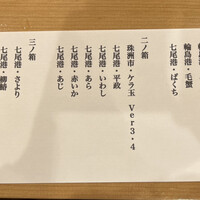 輪島港・毛蟹
七尾港・ばくち
二ノ箱
珠洲市・ケラ玉 Ver3・4
七尾港・平政
七尾港・いわし
七尾港・あら
七尾港・赤いか
七尾港・あじ
三ノ箱
七尾港・さより
七尾港・柳鰆